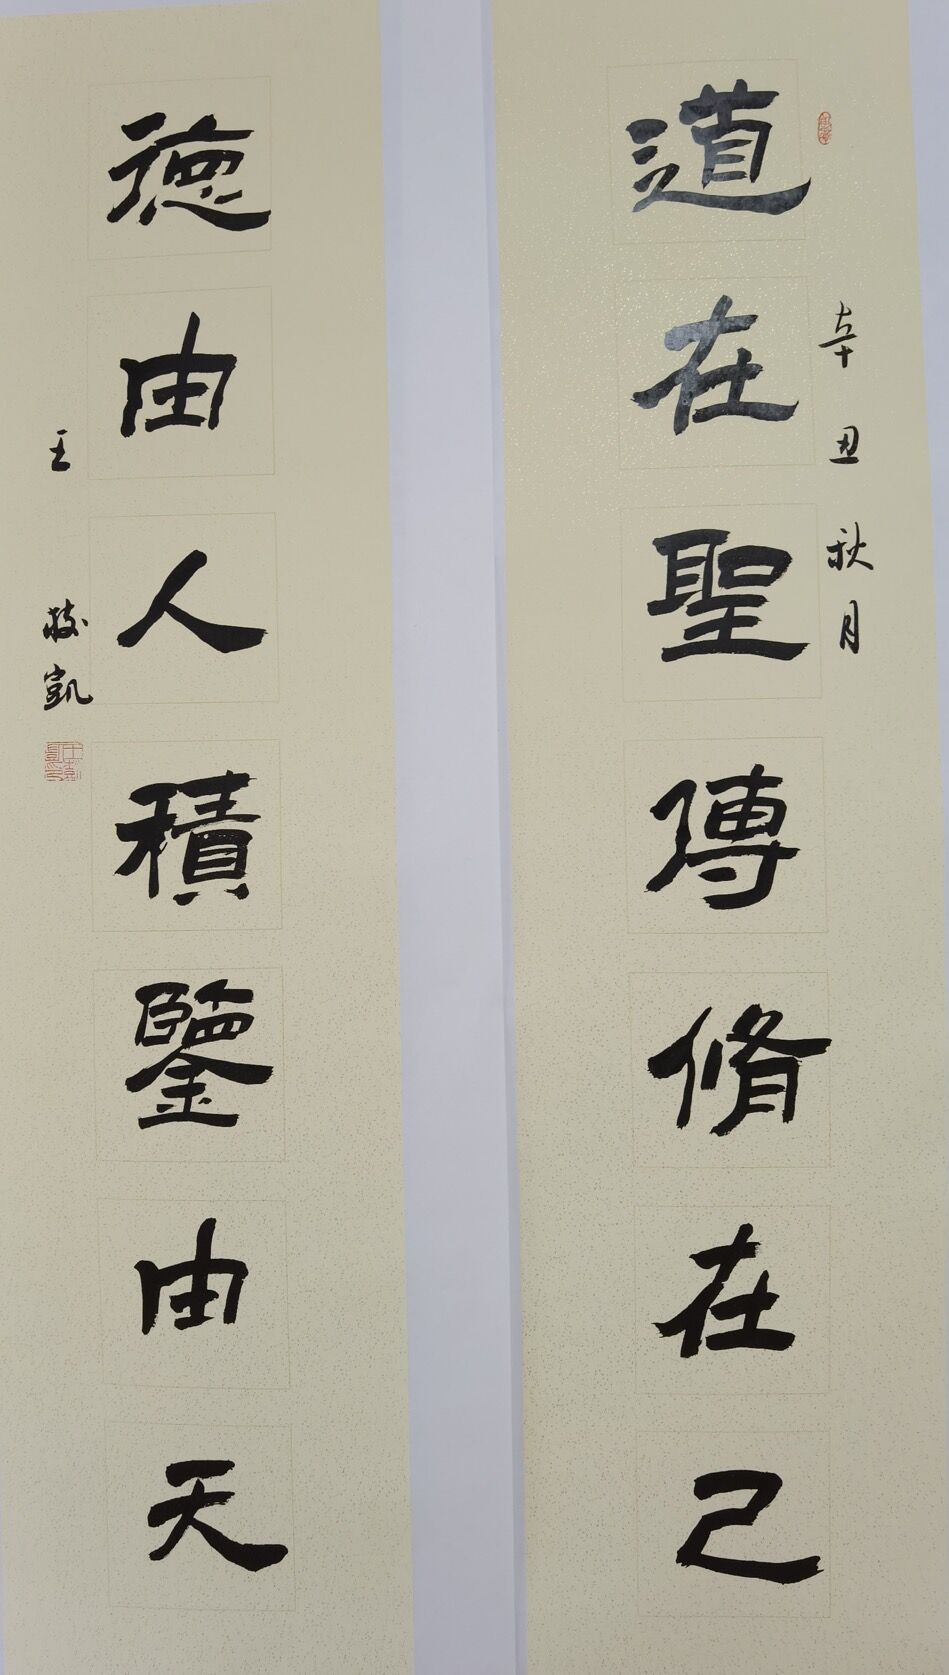 辛丑秋月
道在聖傳脩在己
德由人積鑒由天
王 凱